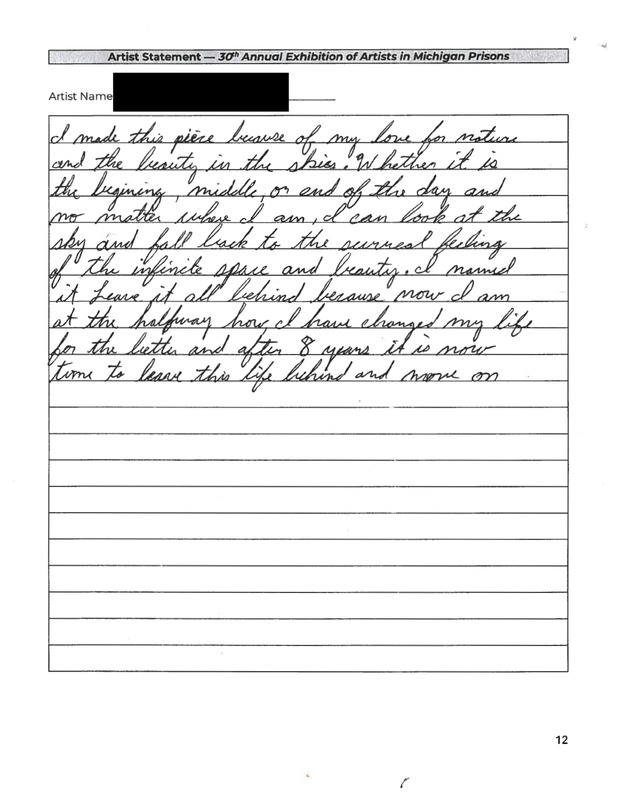 Artist Statement — 30th Annual Exhibition of Artists in Michigan Prisons
Artist Name
I made this pièce because of my love for nature
and the beauty in the skies. Whether it is
the begining, middle, or end of the day and
no matter where I am, I can look at the
sky and fall back to the surreal feeling
of the infinite space and beauty. I named
it Leave it all behind because now I am
at the halfway how I have changed my life
for the better and after 8 years it is now
time to leave this life behind and move on
12